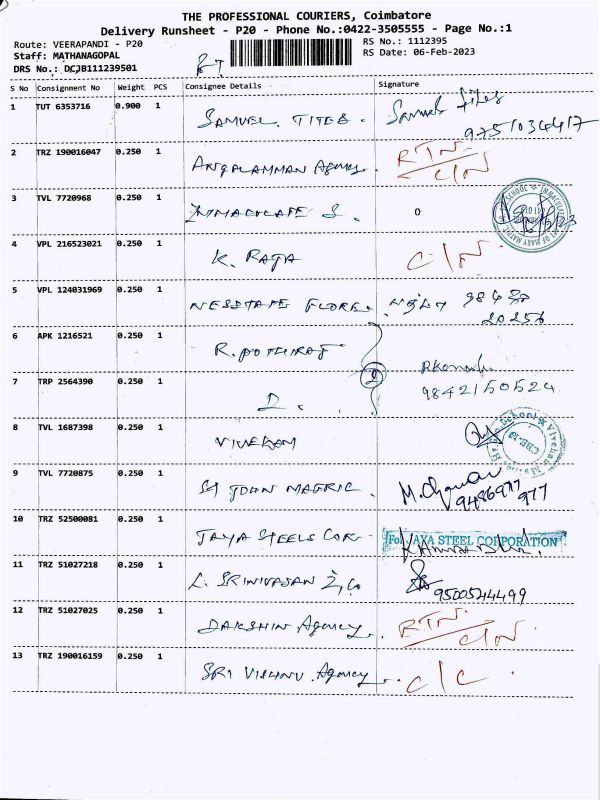 THE PROFESSIONAL COURIERS, Coimbatore
Delivery Runsheet - P20 - Phone No.:0422-3505555 - Page No.:1
Route: VEERAPANDI - P20 RS No.: 1112395
Staff: MATHANAGOPAL RS Date: 06-Feb-2023
DRS No.: DCJB111239501
S No Consignment No Weight PCS Consignee Details Signature
1 TUT 6353716 0.900 1 SAMUEL. TITES.
9751034417
2 TRZ 190016047 0.250 1 ANGALAMMAN Agency. RTN
C/N
3 TVL 7720968 0.250 1 IMMACULATE S. 0
4 VPL 216523021 0.250 1 K. RAJA C/N
5 VPL 124031969 0.250 1 FLORE.
6 APK 1216521 0.250 1 R. POTHIRAJ
2
7 TRP 2564390 0.250 1 9842150524
8 TVL 1687398 0.250 1 VIVEKAM
9 TVL 7720875 0.250 1 ST JOHN MATRIC. M.
9486977
977
10 TRZ 52500081 0.250 1 JAYA STEELS COR For JAYA STEEL CORPORATION
11 TRZ 51027218 0.250 1 L. SRINIVASAN & Co 9500544499
12 TRZ 51027025 0.250 1 DAKSHIN Agency. RTN
C/N
13 TRZ 190016159 0.250 1 SRI VISHNU Agency. C/C